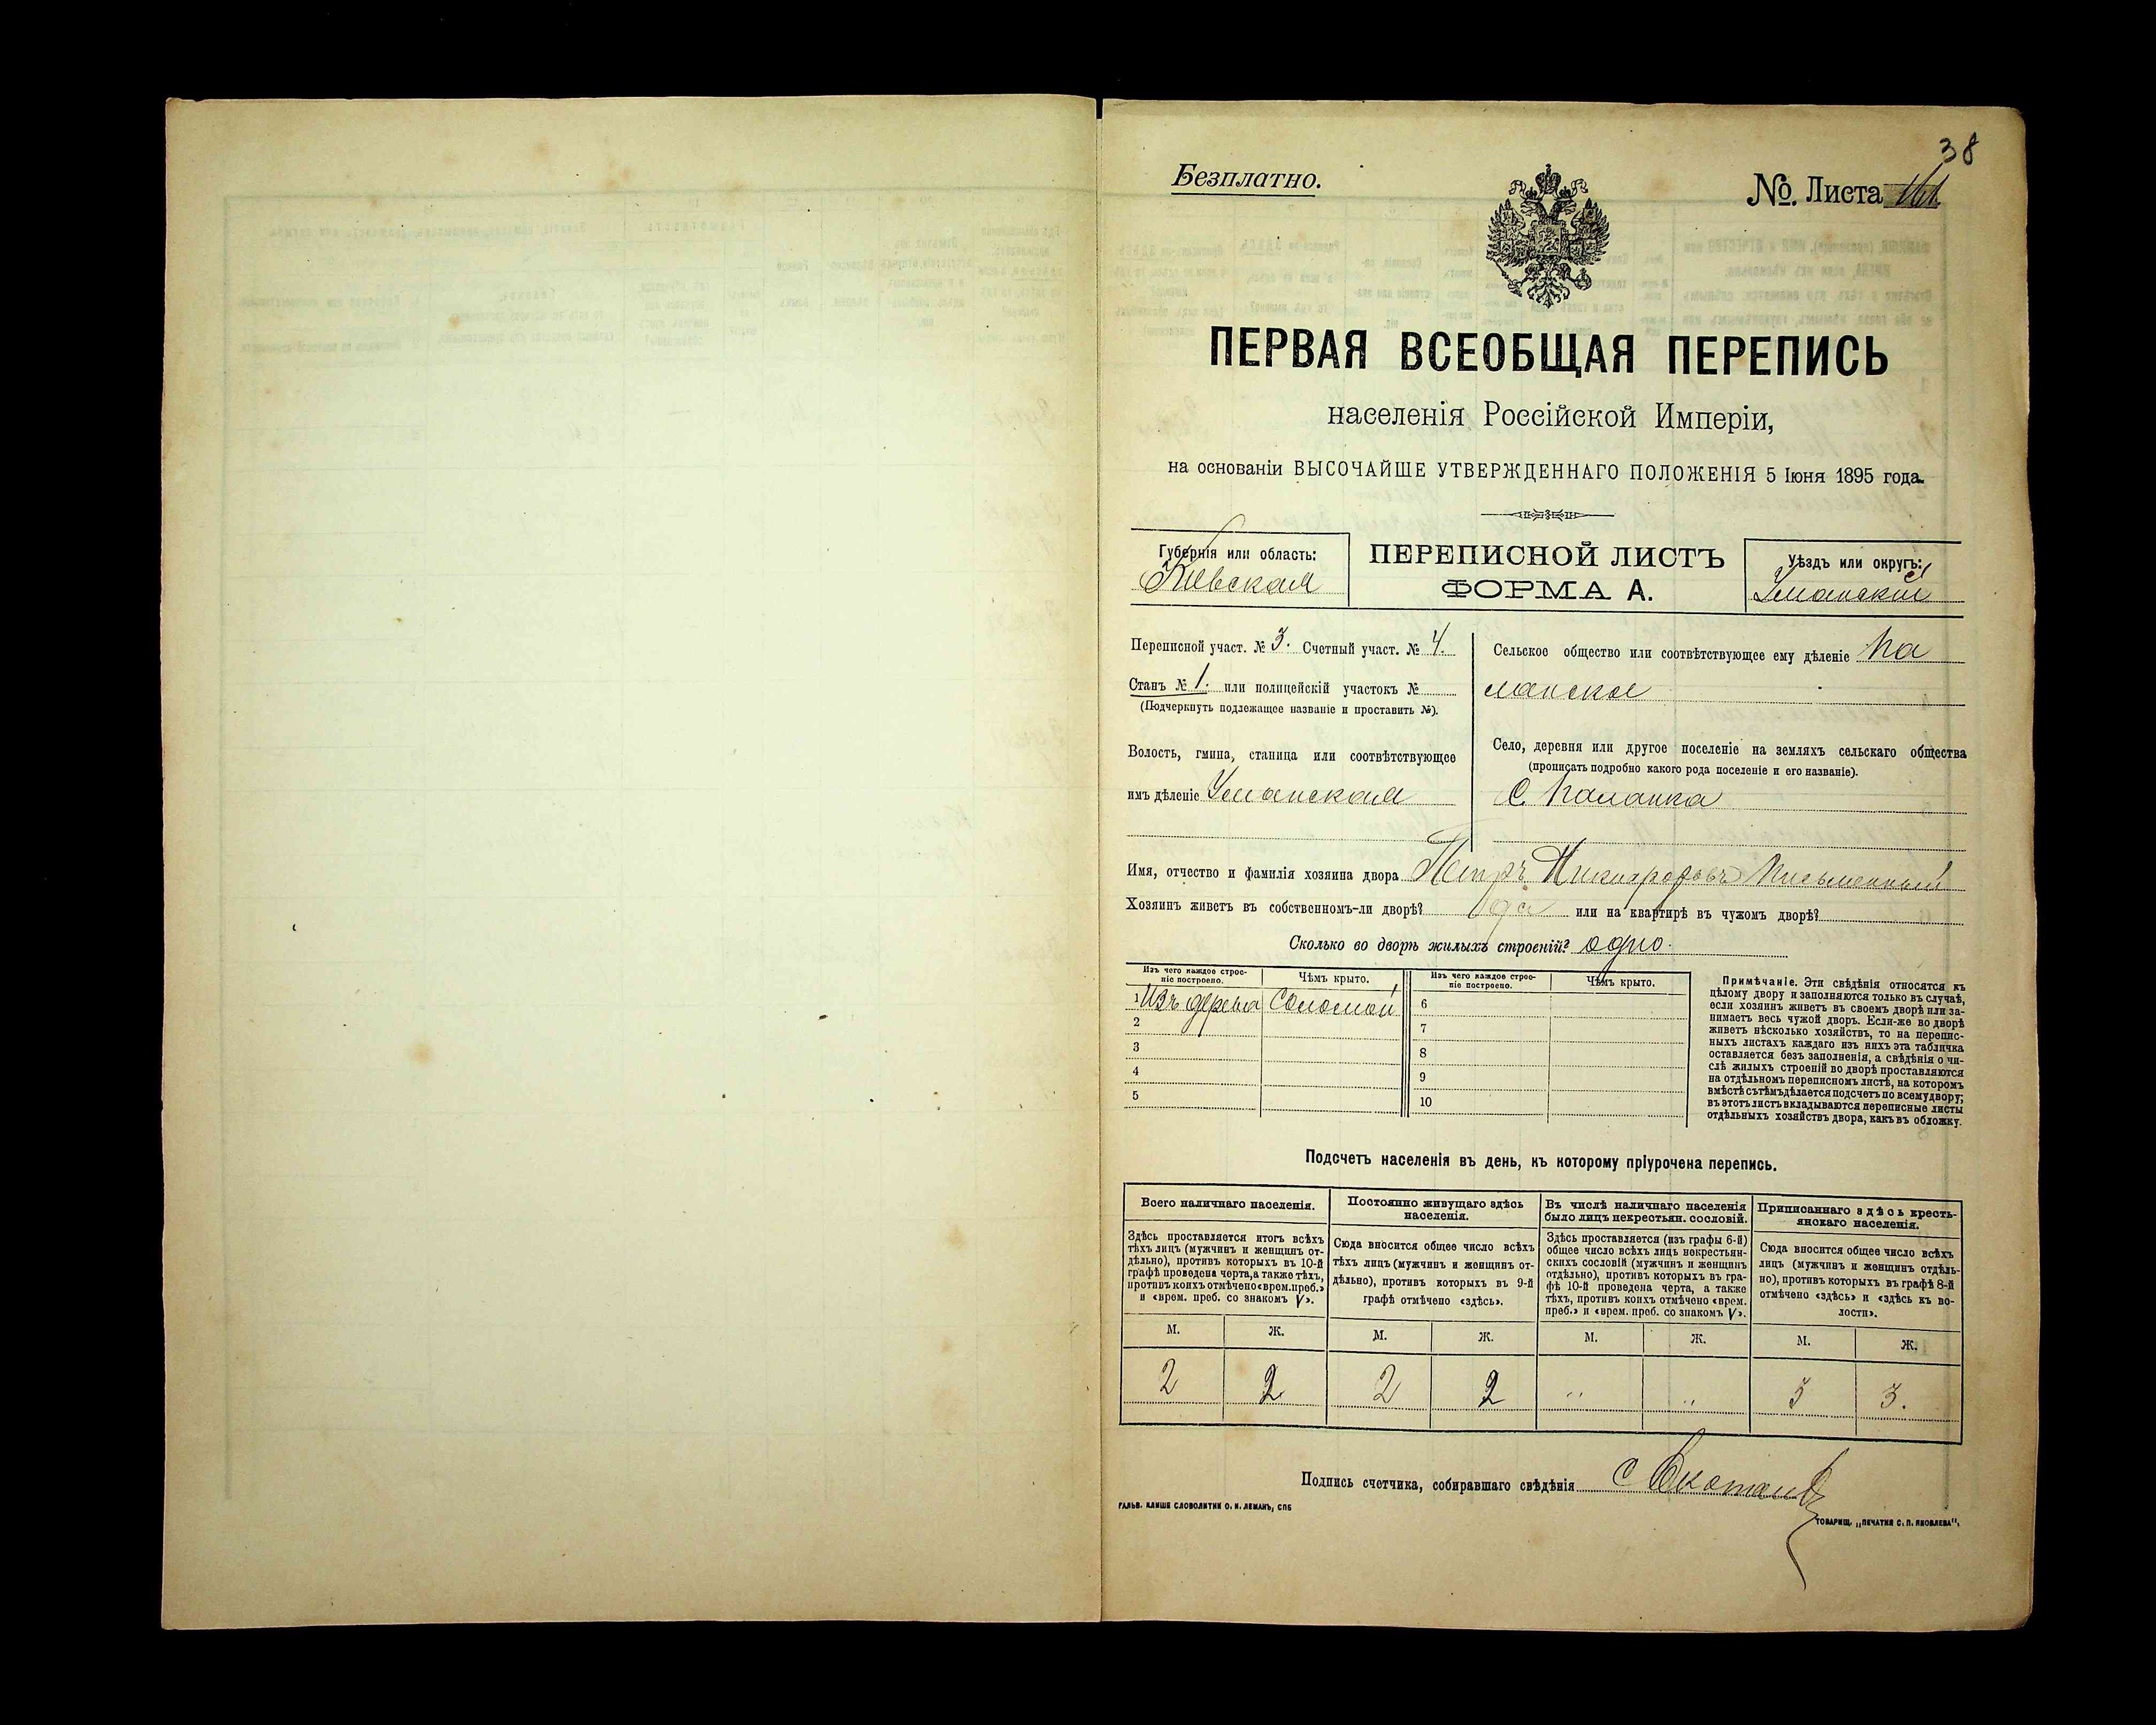 38
Безплатно.
№. Листа
ПЕРВАЯ ВСЕОБЩАЯ ПЕРЕПИСЬ
населенія Россійской Имперіи,
на основаніи ВЫСОЧАЙШЕ УТВЕРЖДЕННАГО ПОЛОЖЕНІЯ 5 Іюня 1895 года.
Губернія или область:
Кіевская
ПЕРЕПИСНОЙ ЛИСТЪ
ФОРМА А.
Уѣздъ или округъ:
Уманскій
Переписной участ. № 3. Счетный участ. № 4.
Станъ № 1. или полицейскій участокъ №
(Подчеркнуть подлежащее названіе и проставить №).
Волость, гмина, станица или соотвѣтствующее
имъ дѣленіе Уманская
Сельское общество или соотвѣтствующее ему дѣленіе Па
ланское
Село, деревня или другое поселеніе на земляхъ сельскаго общества
(прописать подробно какого рода поселеніе и его названіе).
С. Паланка
Имя, отчество и фамилія хозяина двора Петръ Никифоровъ Письменный
Хозяинъ живетъ въ собственномъ-ли дворѣ? да или на квартирѣ въ чужомъ дворѣ?
Сколько во дворѣ жилыхъ строеній? одно.
Изъ чего каждое строе-
ніе построено.
Чѣмъ крыто.
Изъ чего каждое строе-
ніе построено.
Чѣмъ крыто.
1 Изъ дерева Соломой 6
2 7
3 8
4 9
5 10
Примѣчаніе. Эти свѣдѣнія относятся къ
цѣлому двору и заполняются только въ случаѣ,
если хозяинъ живетъ въ своемъ дворѣ или за-
нимаетъ весь чужой дворъ. Если-же во дворѣ
живетъ нѣсколько хозяйствъ, то на перепис-
ныхъ листахъ каждаго изъ нихъ эта табличка
оставляется безъ заполненія, а свѣдѣнія о чи-
слѣ жилыхъ строеній во дворѣ проставляются
на отдѣльномъ переписномъ листѣ, на которомъ
вмѣстѣ съ тѣмъ дѣлается подсчетъ по всему двору;
въ этотъ листъ вкладываются переписные листы
отдѣльныхъ хозяйствъ двора, какъ въ обложку.
Подсчетъ населенія въ день, къ которому пріурочена перепись.
Всего наличнаго населенія.
Здѣсь проставляется итогъ всѣхъ
тѣхъ лицъ (мужчинъ и женщинъ от-
дѣльно), противъ которыхъ въ 10-й
графѣ проведена черта, а также тѣхъ,
противъ коихъ отмѣчено «врем. преб.»
и «врем. преб. со знакомъ V».
Постоянно живущаго здѣсь
населенія.
Сюда вносится общее число всѣхъ
тѣхъ лицъ (мужчинъ и женщинъ от-
дѣльно), противъ которыхъ въ 9-й
графѣ отмѣчено «здѣсь».
Въ числѣ наличнаго населенія
было лицъ некрестьян. сословій.
Здѣсь проставляется (изъ графы 6-й)
общее число всѣхъ лицъ некрестьян-
скихъ сословій (мужчинъ и женщинъ
отдѣльно), противъ которыхъ въ гра-
фѣ 10-й проведена черта, а также
тѣхъ, противъ коихъ отмѣчено «врем.
преб.» и «врем. преб. со знакомъ V».
Приписаннаго здѣсь кресть-
янскаго населенія.
Сюда вносится общее число всѣхъ
лицъ (мужчинъ и женщинъ отдѣль-
но), противъ которыхъ въ графѣ 8-й
отмѣчено «здѣсь» и «здѣсь къ во-
лости».
М. Ж. М. Ж. М. Ж. М. Ж.
2 2 2 2 " " 3 3.
Подпись счетчика, собиравшаго свѣдѣнія
ГАЛЬВ. КЛИШЕ СЛОВОЛИТНИ О. И. ЛЕМАНЪ, СПБ
ТОВАРИЩ. „ПЕЧАТНЯ С. П. ЯКОВЛЕВА".